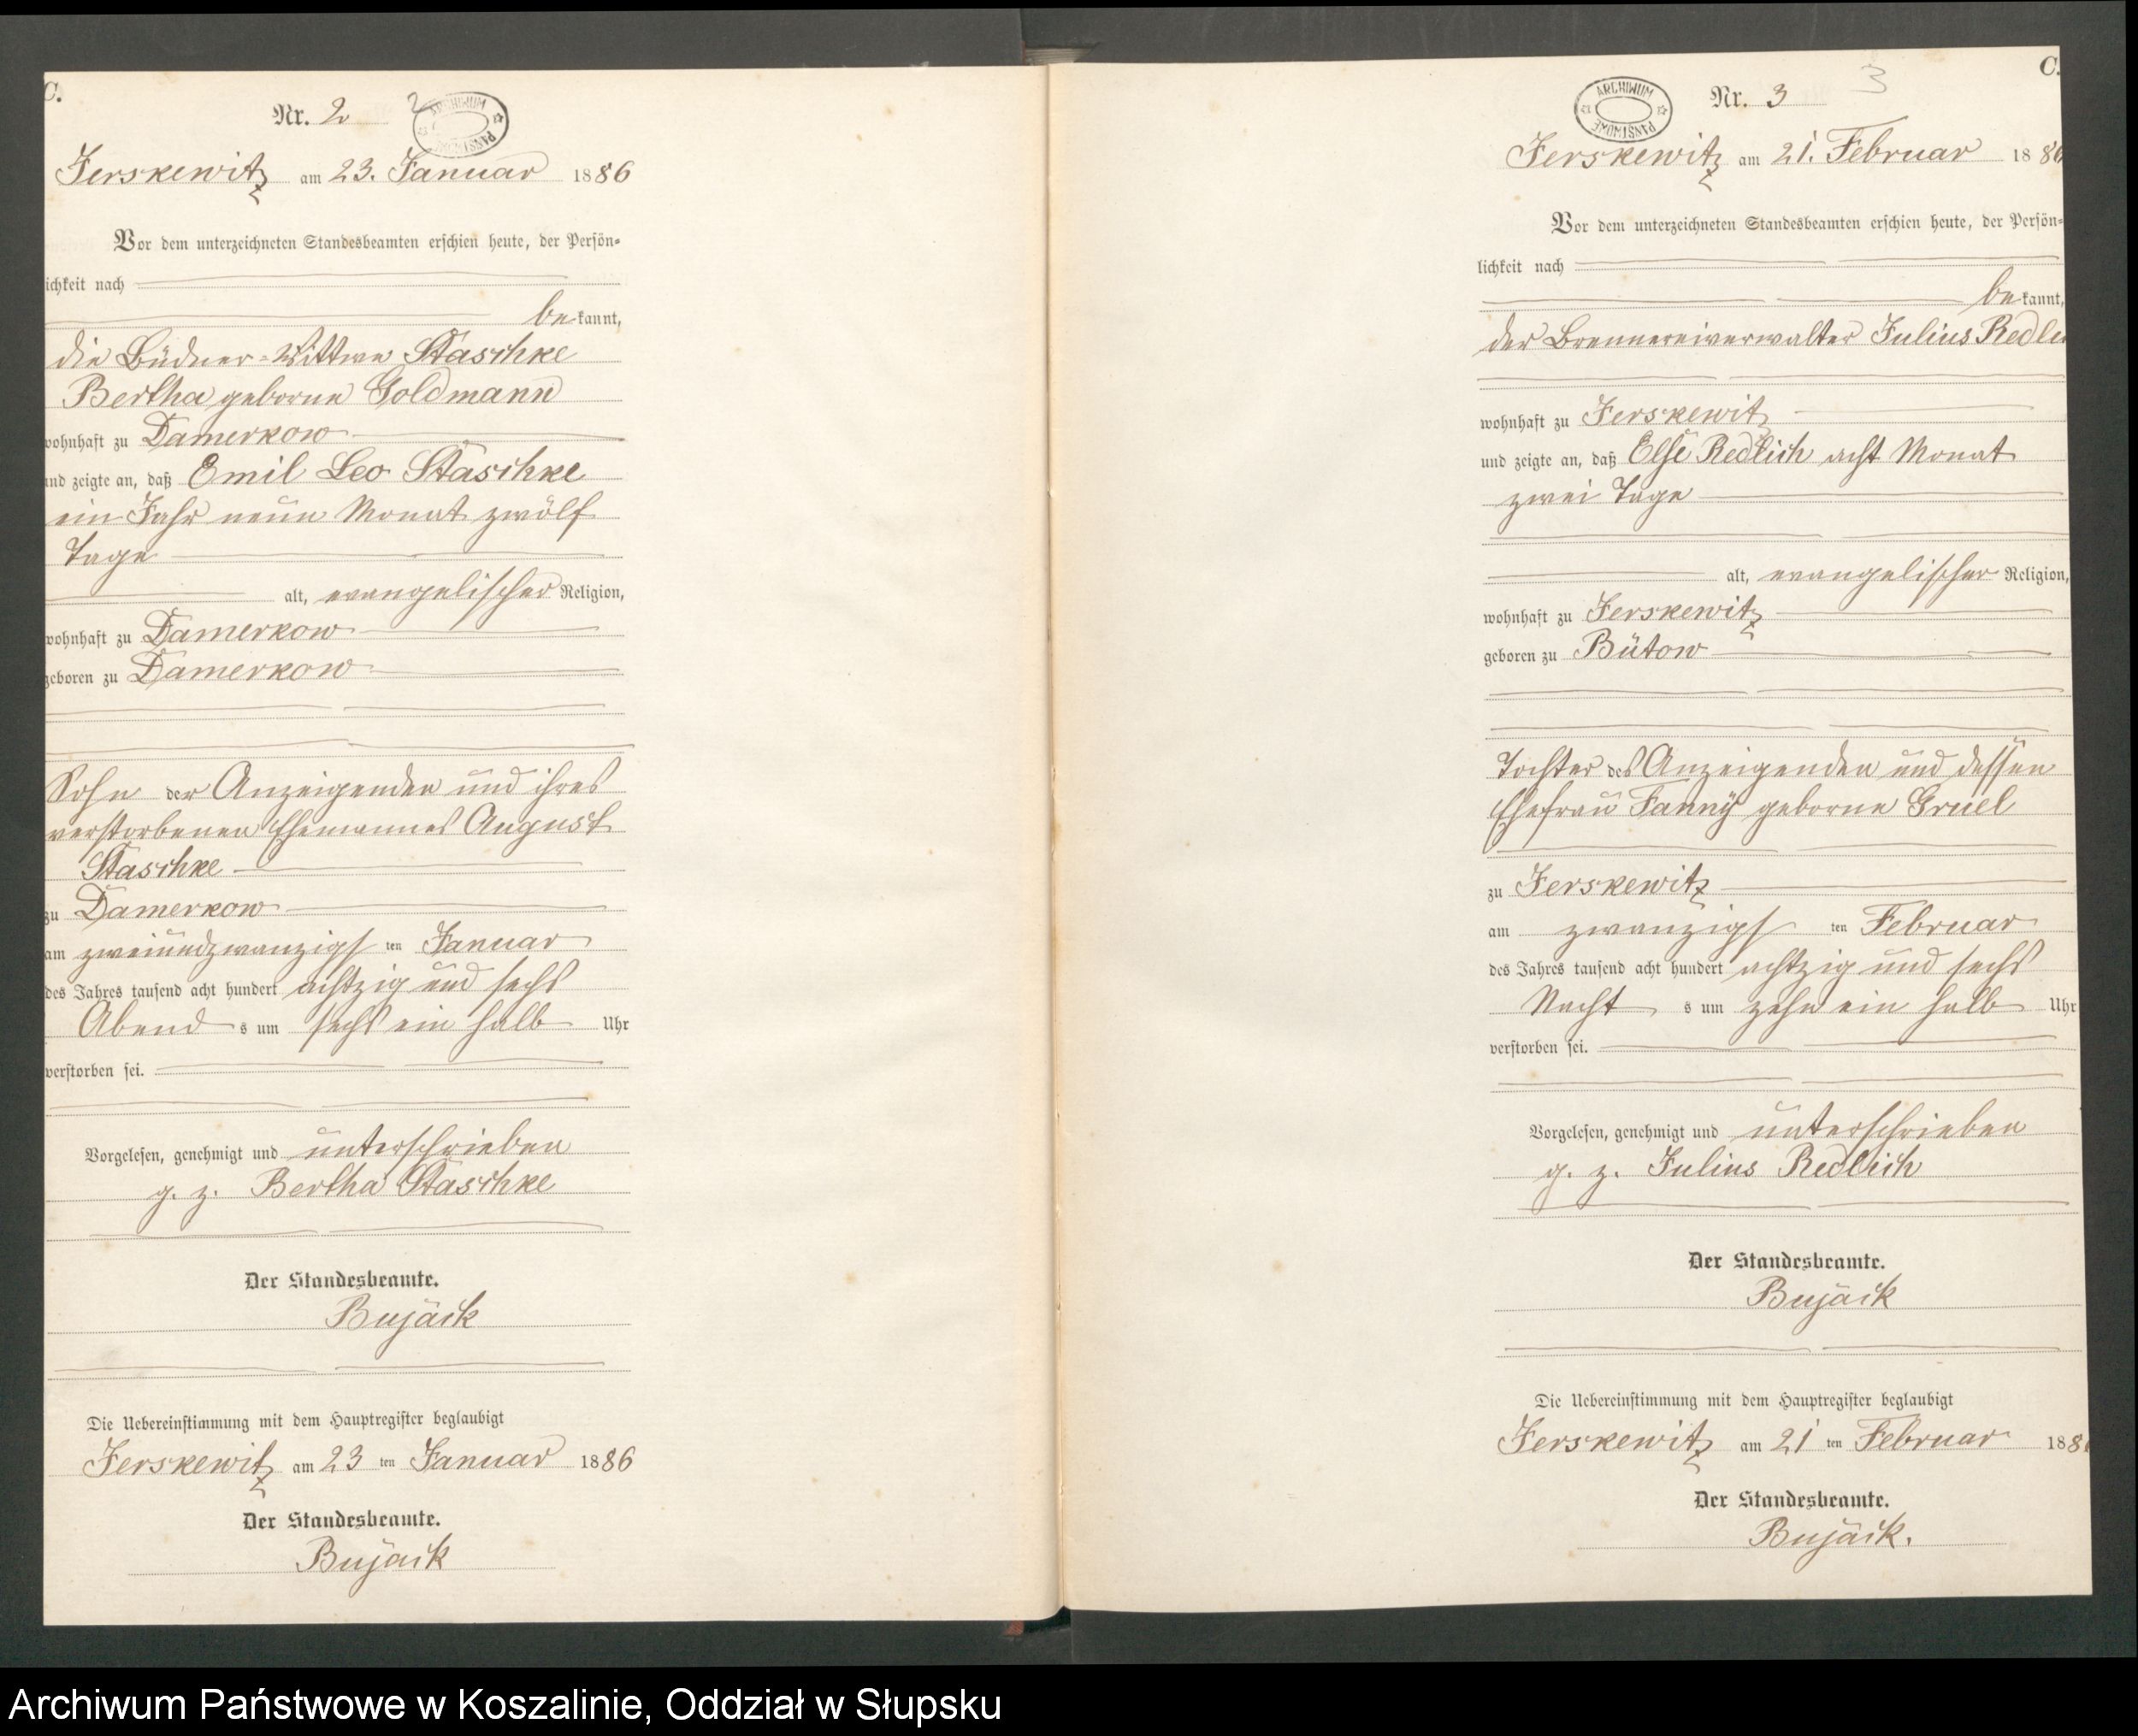 C.
Nr. 2 2
ARCHIWUM PAŃSTWOWE
Jerskewitz am 23. Januar 1886
Vor dem unterzeichneten Standesbeamten erschien heute, der Persön-
lichkeit nach
bekannt,
die Büdner-Wittwe Staschke
Bertha geborne Goldmann
wohnhaft zu Damerkow
und zeigte an, daß Emil Leo Staschke
ein Jahr neun Monat zwölf
Tage
alt, evangelischer Religion,
wohnhaft zu Damerkow
geboren zu Damerkow
Sohn der Anzeigenden und ihres
verstorbenen Ehemannes August
Staschke
zu Damerkow
am zweiundzwanzigsten Januar
des Jahres tausend acht hundert achtzig und sechs
Abends um sechs ein halb Uhr
verstorben sei.
Vorgelesen, genehmigt und unterschrieben
g. z. Bertha Staschke
Der Standesbeamte.
Bujäck
Die Uebereinstimmung mit dem Hauptregister beglaubigt
Jerskewitz am 23ten Januar 1886
Der Standesbeamte.
Bujäck
C.
ARCHIWUM PAŃSTWOWE
Nr. 3 3
Jerskewitz am 21. Februar 1886
Vor dem unterzeichneten Standesbeamten erschien heute, der Persön-
lichkeit nach
bekannt,
der Brennereiverwalter Julius Redli
wohnhaft zu Jerskewitz
und zeigte an, daß Else Redlich acht Monat
zwei Tage
alt, evangelischer Religion,
wohnhaft zu Jerskewitz
geboren zu Bütow
Tochter des Anzeigenden und dessen
Ehefrau Fanny geborne Gruel
zu Jerskewitz
am zwanzigsten Februar
des Jahres tausend acht hundert achtzig und sechs
Nachts um zehn ein halb Uhr
verstorben sei.
Vorgelesen, genehmigt und unterschrieben
g. z. Julius Redlich
Der Standesbeamte.
Bujäck
Die Uebereinstimmung mit dem Hauptregister beglaubigt
Jerskewitz am 21ten Februar 188
Der Standesbeamte.
Bujäck.
Archiwum Państwowe w Koszalinie, Oddział w Słupsku